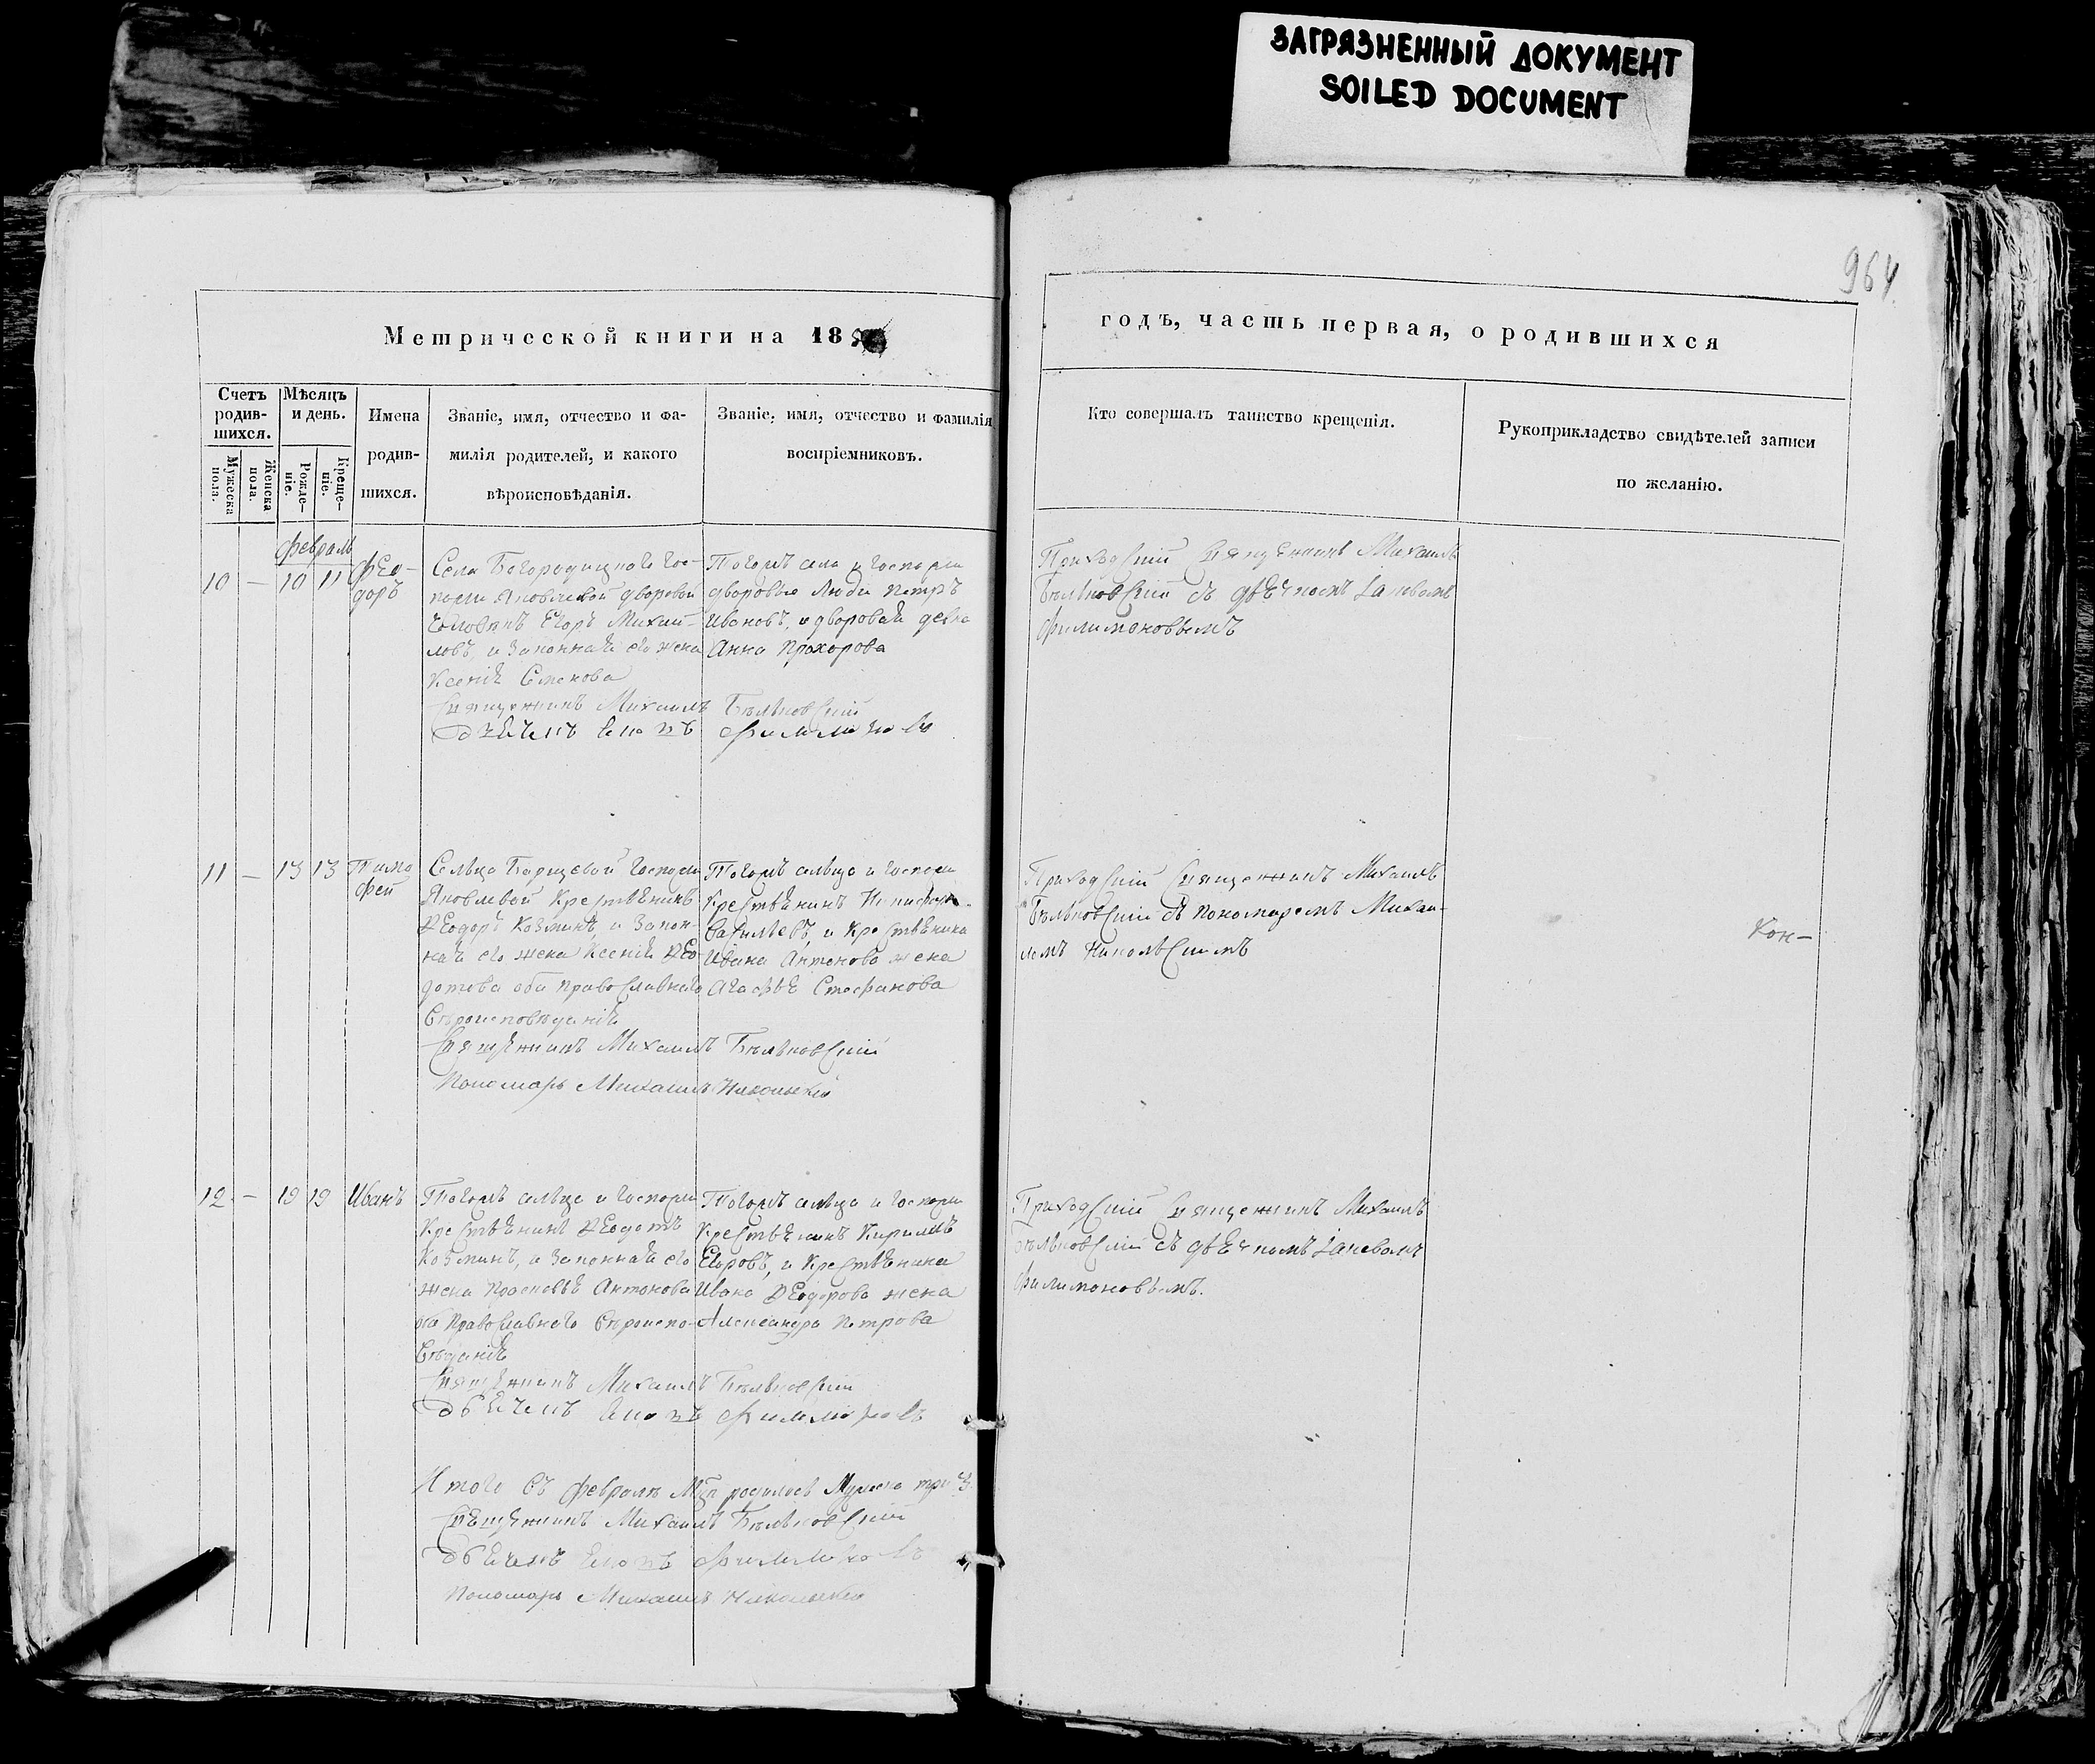 ЗАГРЯЗНЕННЫЙ ДОКУМЕНТ
SOILED DOCUMENT
964
Метрической книги на 18
годъ, часть первая, о родившихся
Счетъ родив-шихся.
Мужеска пола.
Женска пола.
Мѣсяцъ и день.
Рожде-ніе.
Креще-ніе.
Имена родив-шихся.
Званіе, имя, отчество и фа-
милія родителей, и какого
вѣроисповѣданія.
Званіе, имя, отчество и фамилія
воспріемниковъ.
Кто совершалъ таинство крещенія.
Рукоприкладство свидѣтелей записи
по желанію.
февраль
10 — 10 11 Фео-
доръ
Села Богородицкого гос-
пожи Яковлевой дворовой
человекъ Егоръ Михай-
ловъ, и законная его жена
Ксенія Семенова
Священникъ Михаилъ Бѣльковскій
Дьячекъ Филимоновъ
Тогожъ села и госпожи
дворовые люди Петръ
Ивановъ, и дворовая девка
Анна Прохорова
Приходскій Священникъ Михаилъ
Бѣльковскій съ дьячкомъ
Филимоновымъ
11 — 13 13 Тимо
фей
Сельца Борщевой госпожи
Яковлевой Крестьянинъ
Ѳеодоръ Козминъ, и закон-
ная его жена Ксенія Ѳео-
дотова оба православнаго
вѣроисповѣданія
Священникъ Михаилъ Бѣльковскій
Пономарь Михаилъ Никольскій
Тогожъ сельца и госпожи
Крестьянинъ
Васильевъ, и Крестьянина
Ивана Антонова жена
Агафья Стефанова
Приходскій Священникъ Михаилъ
Бѣльковскій съ пономаремъ Михаи-
ломъ Никольскимъ
Кон-
12 — 19 19 Иванъ
Тогожъ сельца и госпожи
Крестьянинъ Ѳеодотъ
Козминъ, и законная его
жена Прасковья Антонова
оба православнаго вѣроиспо-
вѣданія
Священникъ Михаилъ Бѣльковскій
Дьячекъ Филимоновъ
Тогожъ сельца и госпожи
Крестьянинъ Кирилъ
Егоровъ, и Крестьянина
Ивана Ѳеодорова жена
Александра Петрова
Приходскій Священникъ Михаилъ
Бѣльковскій съ дьячкомъ
Филимоновымъ.
Итого въ февралѣ родилось Мужска три 3.
Священникъ Михаилъ Бѣльковскій
Дьячекъ Филимоновъ
Пономарь Михаилъ Никольскій